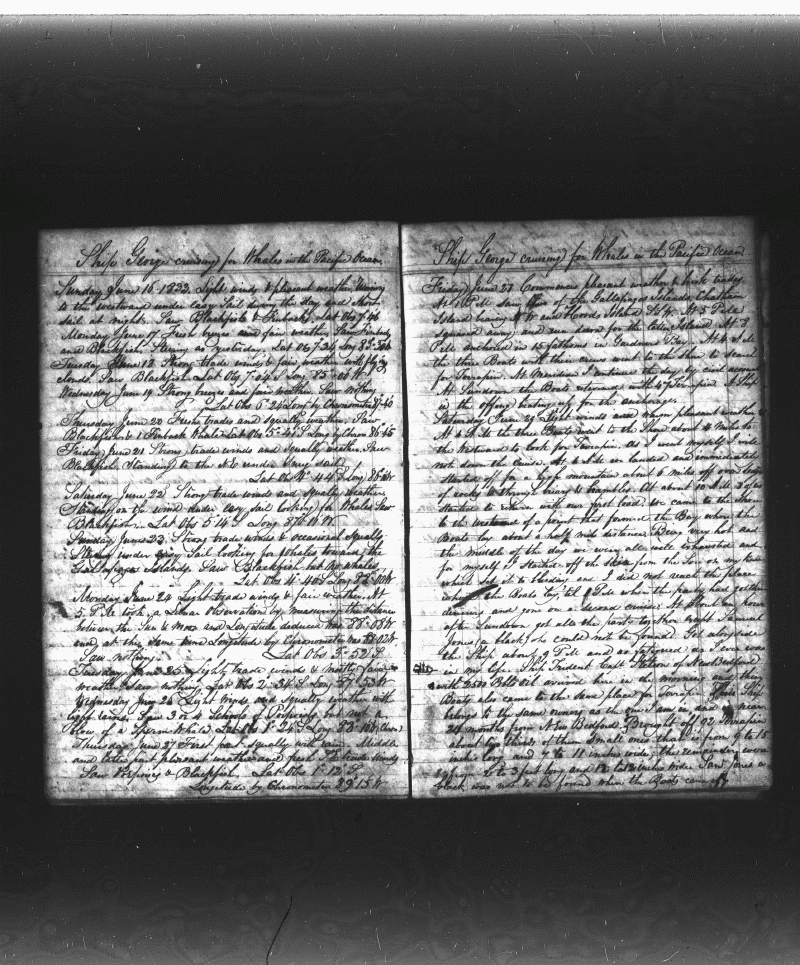 Ship George cruising for Whales in the Pacific Ocean
Sunday June 16. 1833. Light winds & pleasant weather Steering
to the westward under easy Sail during the day and short
sail at night. Saw Blackfish & Finbacks Lat Obs 7.46
Monday June 17 Fresh breezes and fair weather Saw Finbacks
and Blackfish, Steering as yesterday. Lat Obs 7.24 Long 83
Tuesday June 18 Strong trade winds & fair weather with flying
clouds. Saw Blackfish. Lat Obs 7.04 S Long 85
Wednesday June 19 Strong breezes and fair weather Saw nothing
Lat Obs 6° 24 Long by Chronometer
Thursday June 20 Fresh trades and squally weather. Saw
Blackfish & 1 Finback Whale Lat Obs 5° 45 S Long by Chron 86.45
Friday June 21 Strong trade winds and squally weather. Saw
Blackfish Standing to the N.E under easy sail
Lat Obs 44 S Long 86
Saturday June 22 Strong trade winds and squally weather
Steering on the wind under easy sail looking for Whales Saw
Blackfish. Lat Obs 5 14 S Long 87 W
Sunday June 23. Strong trade winds & occasional squalls
Steering under easy Sail looking for whales toward the
Gallapagos Islands. Saw Blackfish but no whales,
Lat Obs 4° 40 S Long
Monday June 24 Light trade winds & fair weather. At
5. P.M. took a Lunar Observation by measuring the distance
between the Sun & Moon and Longitude deduced was 88° 03 W
and at the same time Longitude by Chronometer was 02 W
Saw nothing. Lat Obs 3° 52 S
Tuesday June 25. Light trade winds & mostly fair
weather saw nothing Lat Obs 2° 34 S Long 87° 53 W
Wednesday June 26 Light winds and squally weather with
light rains. Saw 3 or 4 Schools of Porpoises but not a
blow of a Sperm Whale. Lat Obs 1° 26 S Long 88° 16 W (Chron)
Thursday June 27 First part squally with rain. Middle
and latter part pleasant weather and fresh trade winds
Saw Porpoises & Blackfish. Lat Obs 1° 12 S
Longitude by Chronometer 89° 15 W
Ship George cruising for Whales in the Pacific Ocean
Friday June 27 Commences pleasant weather & brisk trades
At P.M. saw two of the Gallapagos Islands Chatham
Island bearing W and Hoods Island At 3 P.M.
squared away and run down for the latter Island. At 8
P.M. anchored in 15 fathoms in Gardners Bay. At 4 A.M
the three Boats with their crews went to the Shore to search
for Terrapin. At Meridian I entered the day by civil account
At Sundown the Boats returned with 57 Terrapin. A Ship
in the offing beating up for the anchorage.
Saturday June 29 Light winds and warm pleasant weather
At 4 A.M. the three Boats went to the Shore about 4 Miles to
the Westward to look for Terrapin. As I went myself I will
not down the Cruise. At 6 A.M. we landed and immediately
started off for a high mountain about 6 miles off over ledges
of rocks & through briars & brambles. At about 10 A.M. 3 of us
started to return with our first load. We came to the Shore
to the westward of a point that formed the Bay where the
Boats lay about a half mile distance. Being very hot and
the middle of the day we were all well exhausted and
for myself I started off the skin from the Sun on my back
which set it to bleeding and I did not reach the place
where the Boats lay, till 2 P.M. when the party had got their
dinners and gone on a second cruise. At about an hour
after Sundown got all the party together except Samuel
Jones (a black) who could not be found. Got alongside
the Ship about 9 P.M. and as fatigued as I ever was
in my life. Ship Trident Capt Stetson of New Bedford
with 2500 Bbls Oil arrived here in the morning and their
Boats also came to the same place for Terrapin. This Ship
belongs to the same owners as the one I am in, and is near
24 months from New Bedford. Brought off 92 Terrapin
about two thirds of them small ones that is from 9 to 15
inches long and 8 to 11 inches wide the remainder were
2 to 3 feet long and 18 to inches wide. Sam Jones a
black was not to be found when the Boats came off